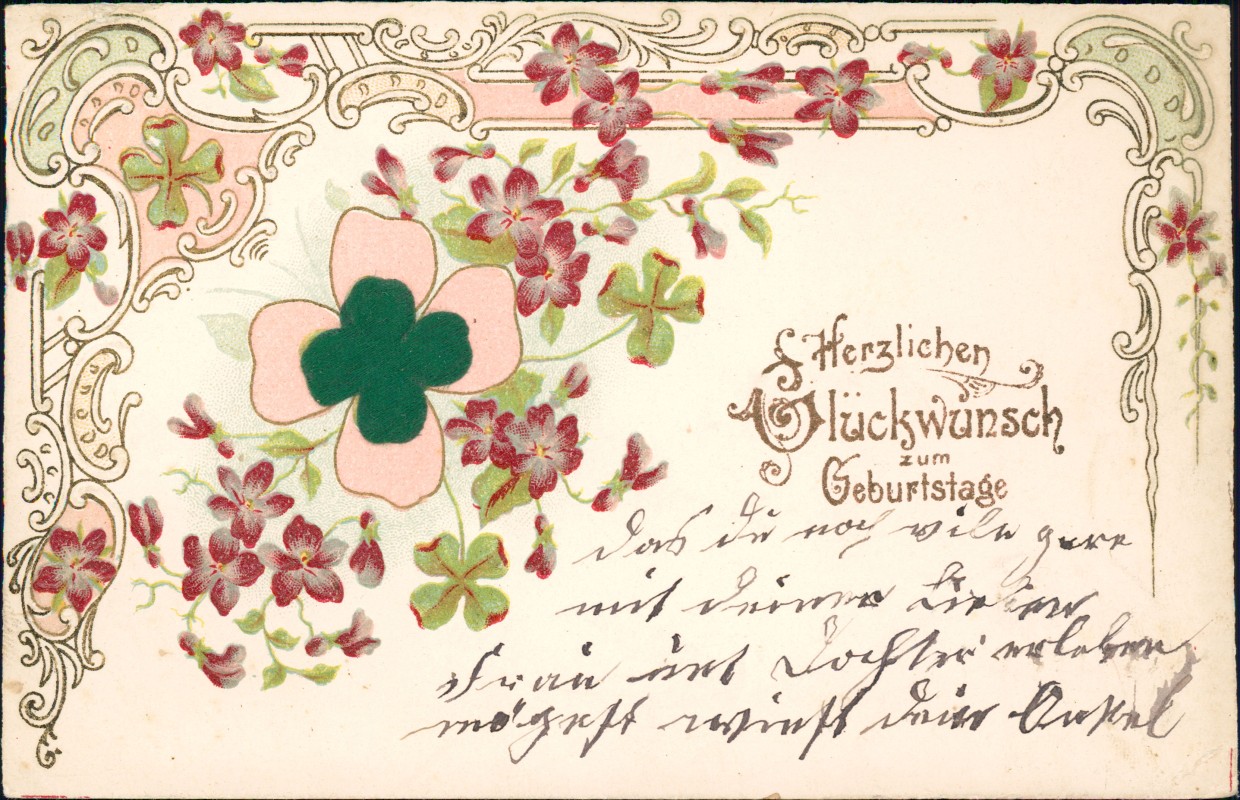 Herzlichen
Glückwunsch
zum
Geburtstage
das du noch vile gare
mit deiner Lieben
Frau und Tochter erleben
mögest winst dein Onkel